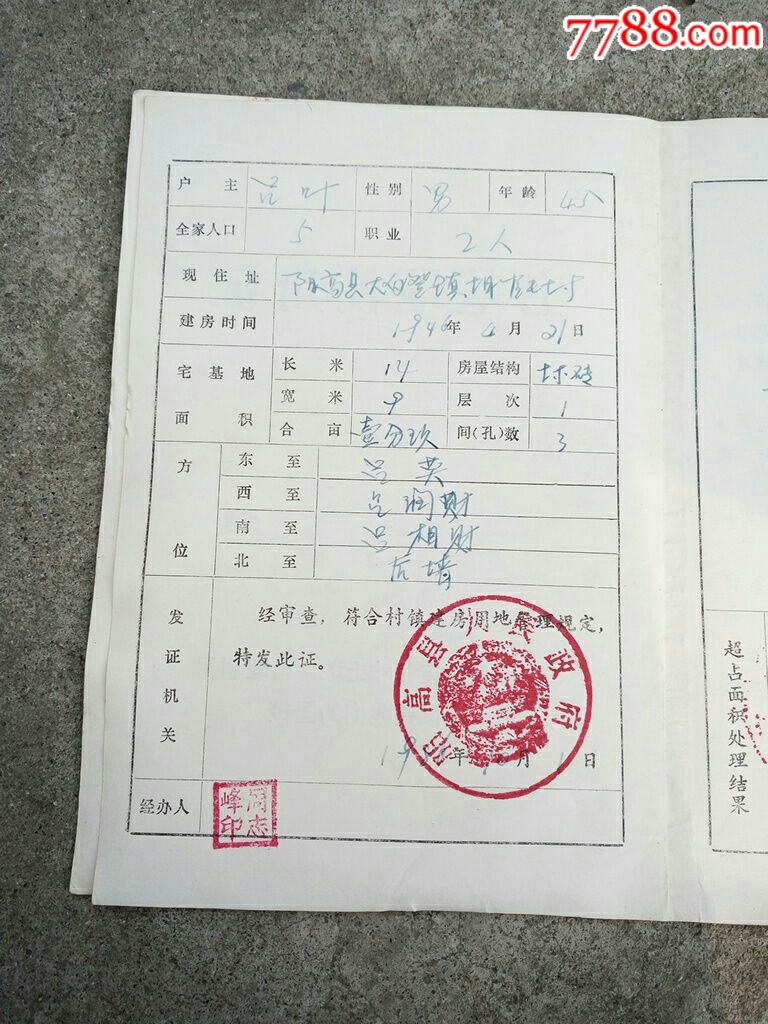 7788.com
户主 吕叶 性别 男 年龄 45
全家人口 5 职业 2人
现住址 阳高县大白登镇
建房时间 1946年4月21日
宅基地面积 长米 14 房屋结构 坯砖
宽米 9 层次 1
合亩 壹分玖 间(孔)数 3
方位 东至 吕英
西至 吕润财
南至 吕相财
北至 后墙
发证机关 经审查，符合村镇建房用地管理规定，
特发此证。
阳高县人民政府
年 月 日
经办人 周志峰印
超占面积处理结果